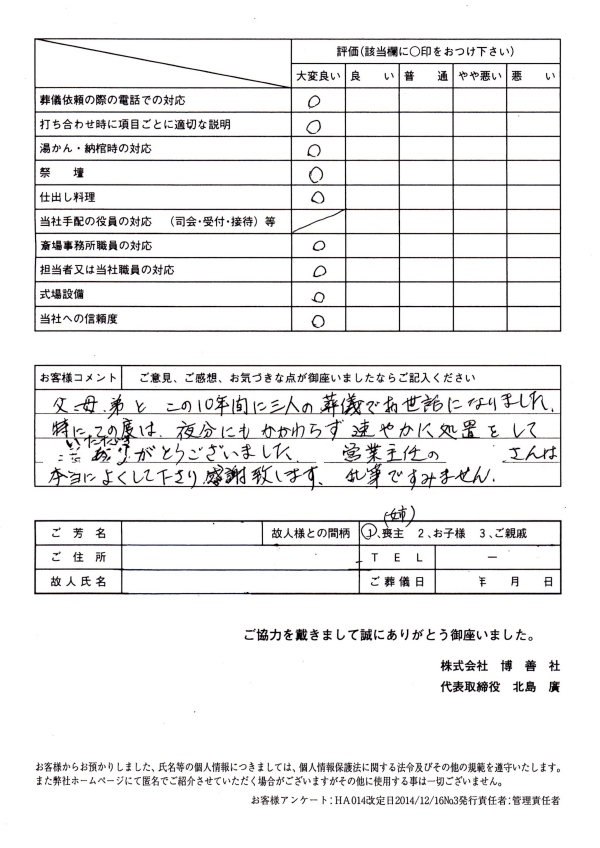 評価(該当欄に○印をおつけ下さい)
大変良い 良い 普通 やや悪い 悪い
葬儀依頼の際の電話での対応 ○
打ち合わせ時に項目ごとに適切な説明 ○
湯かん・納棺時の対応 ○
祭壇 ○
仕出し料理 ○
当社手配の役員の対応 (司会・受付・接待)等
斎場事務所職員の対応 ○
担当者又は当社職員の対応 ○
式場設備 ○
当社への信頼度 ○
お客様コメント ご意見、ご感想、お気づきな点が御座いましたならご記入ください
父、母、弟と この10年間に三人の葬儀でお世話になりました。
特にこの度は、夜分にもかかわらず速やかに処置をして
ありがとうございました。 営業主任の さんは
本当によくして下さり感謝致します、乱筆ですみません。
(姉)
ご芳名 故人様との間柄 1、喪主 2、お子様 3、ご親戚
ご住所 TEL ー
故人氏名 ご葬儀日 年 月 日
ご協力を戴きまして誠にありがとう御座いました。
株式会社 博善社
代表取締役 北島 廣
お客様からお預かりしました、氏名等の個人情報につきましては、個人情報保護法に関する法令及びその他の規範を遵守いたします。
また弊社ホームページにて匿名でご紹介させていただく場合がございますがその他に使用する事は一切ございません。
お客様アンケート:HA014改定日2014/12/16No3発行責任者:管理責任者